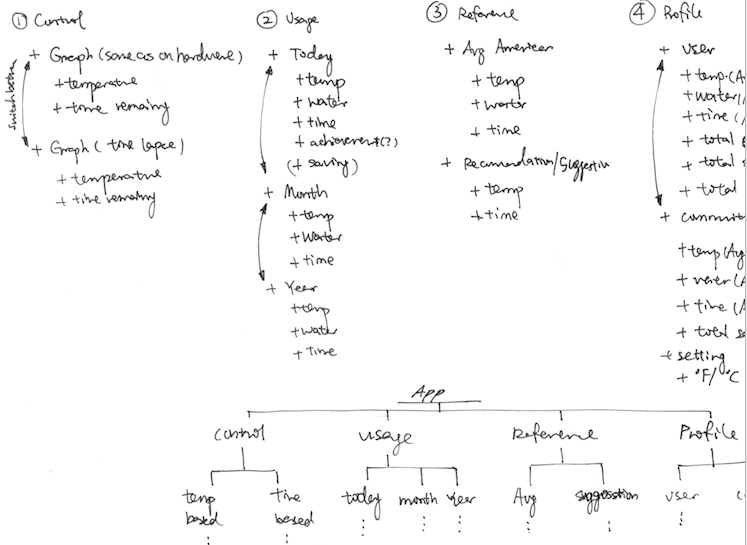 ① Control
+ Graph (same as on hardware)
+ temperature
+ time remaining
switch between
+ Graph (time lapse)
+ temperature
+ time remaining
② Usage
+ Today
+ temp
+ water
+ time
+ achievement (?)
(+ saving)
+ Month
+ temp
+ water
+ time
+ Year
+ temp
+ water
+ time
③ Reference
+ Avg American
+ temp
+ water
+ time
+ Recommendation/Suggestion
+ temp
+ time
④ Profile
+ user
+ temp. (A
+ water (
+ time (
+ total
+ total s
+ total
+ communit
+ temp (Avg
+ water (A
+ time (A
+ total sa
+ setting
+ °F/°C
App
Control usage Reference Profile
temp based time based today month year Avg suggestion user c